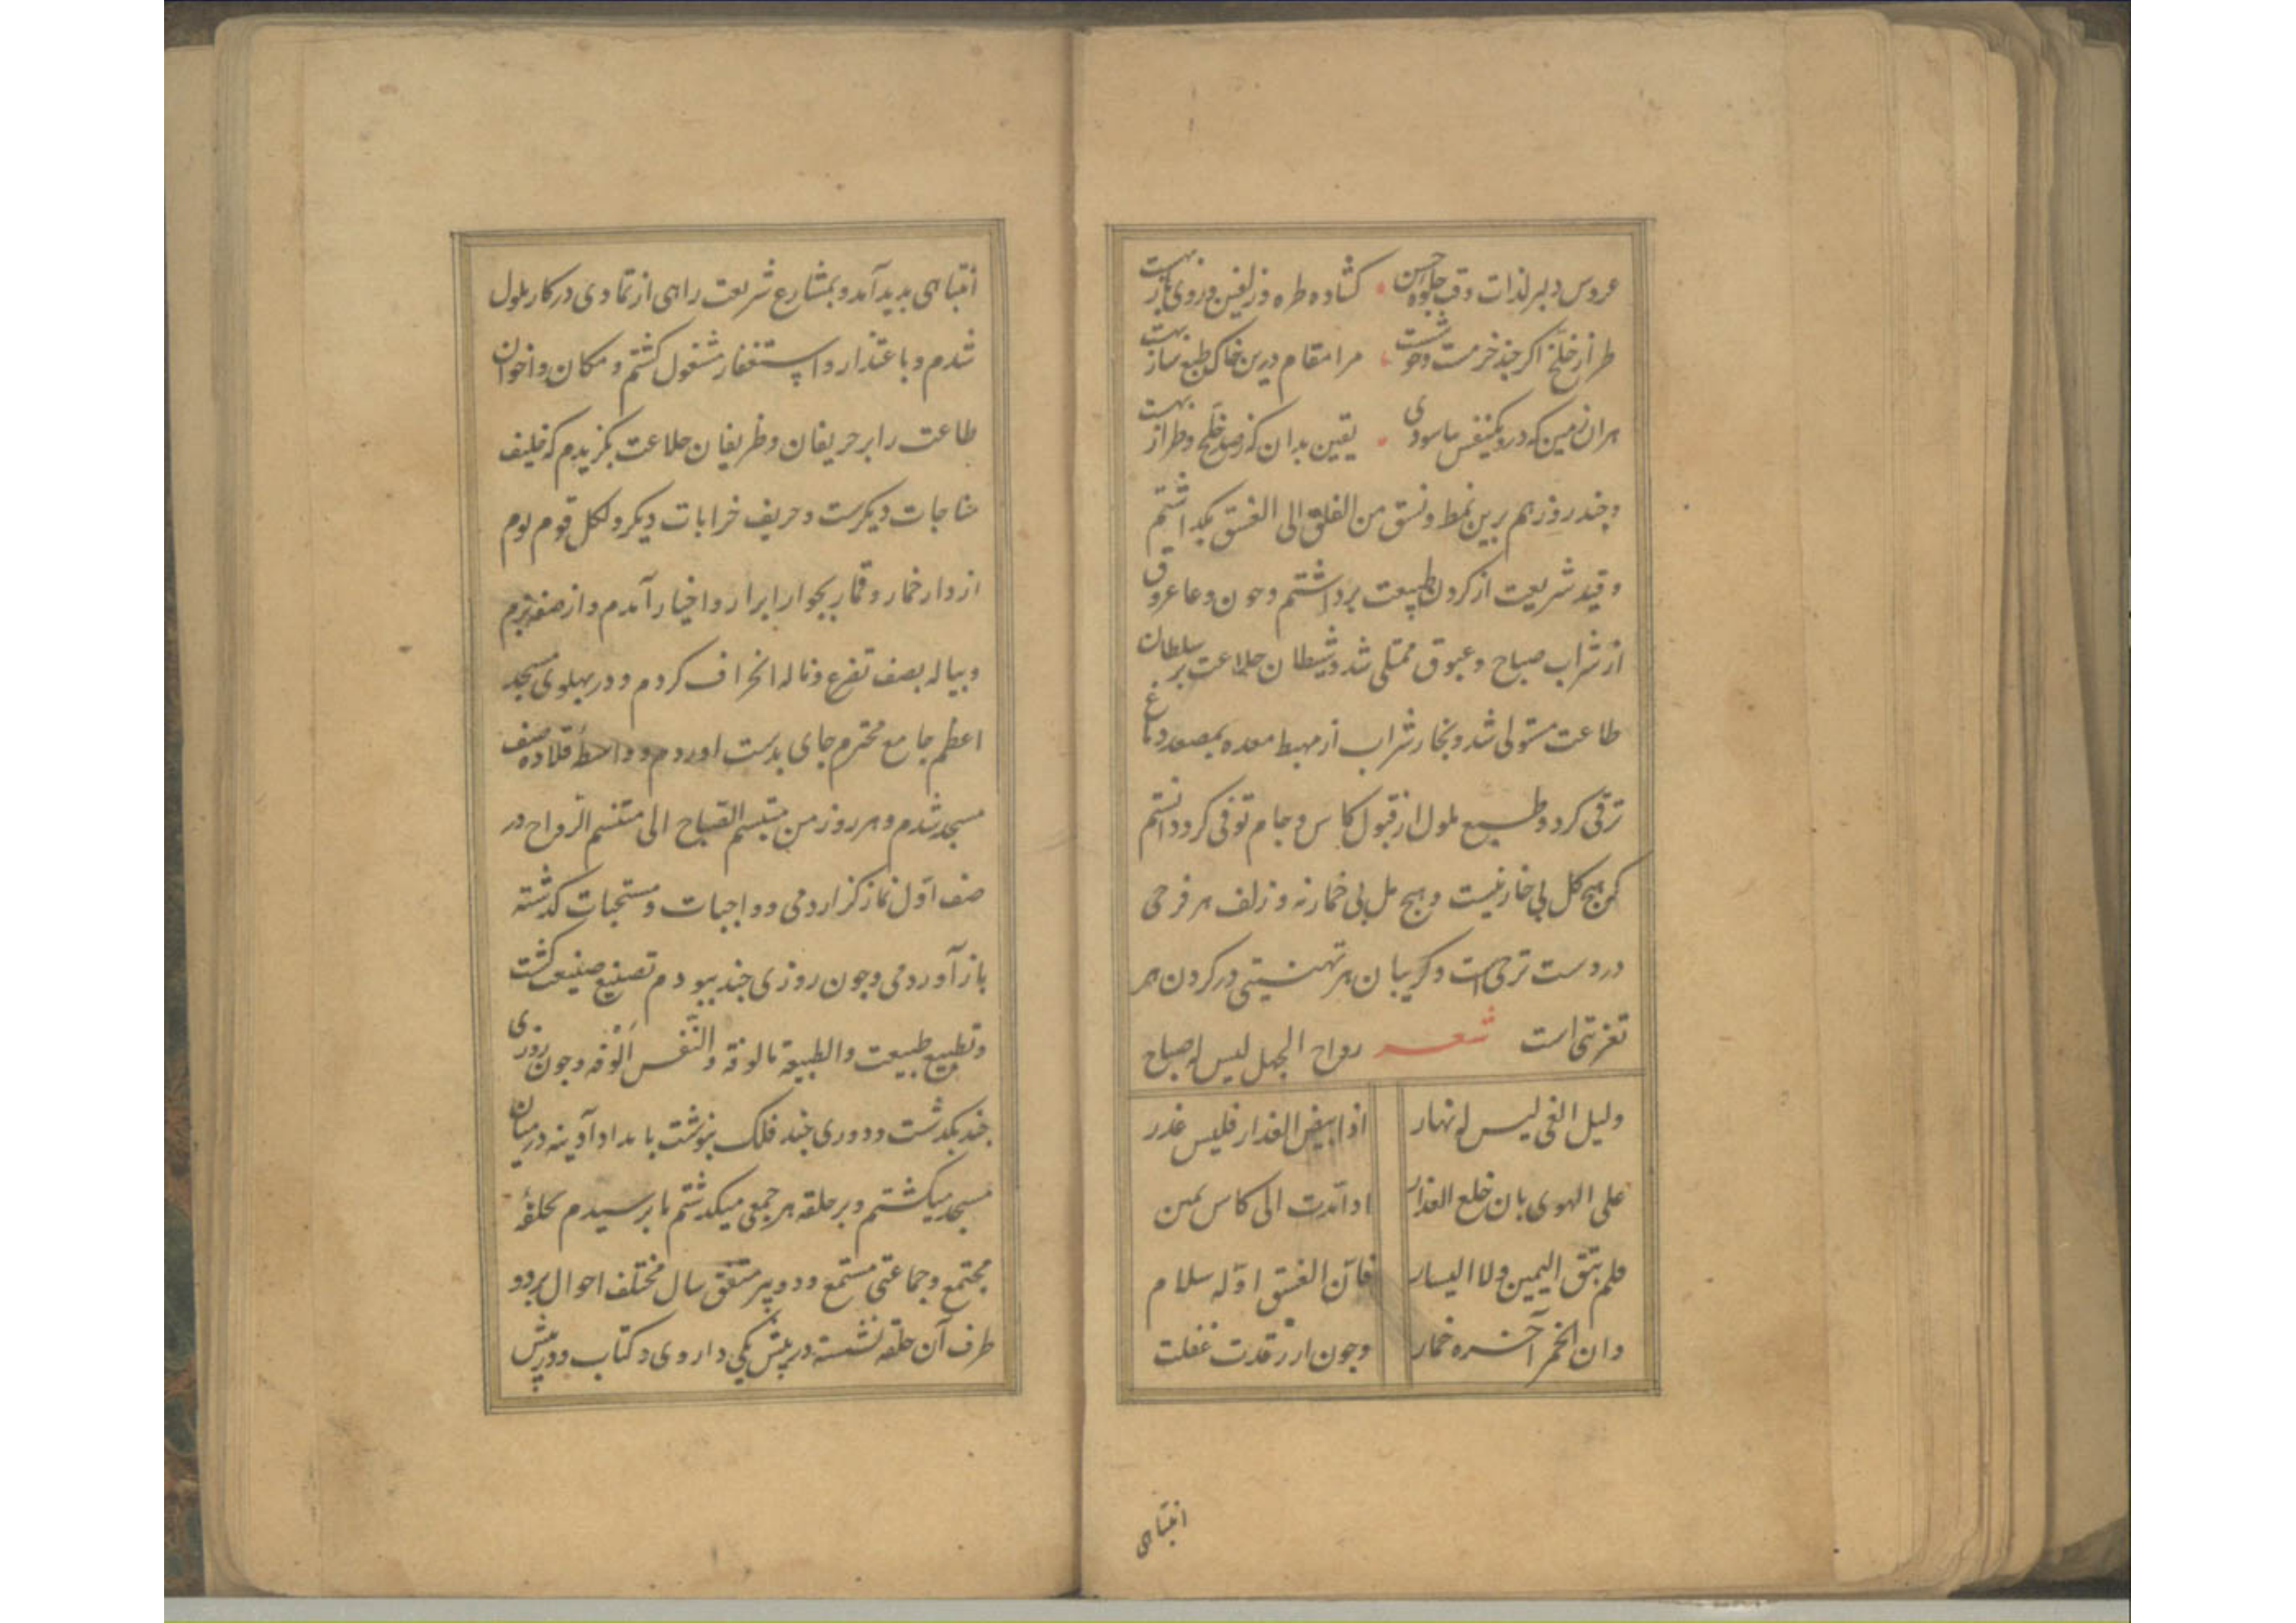 عروس دلبر لذات وقت جلوه حسن • کشاده طره و زلفین و روی باز بهست
طراز خلخ اکر چند خرمست و خوشست • مرا مقام درین خاک طبع ساز بهست
هران زمین که درو یکنفس باسودی • یقین بدان که ز صد خلخ و طراز بهست
و چند روز هم برین نمط و نسق من الفلق الی الغسق بکداشتم
و قید شریعت از کردن طبیعت برداشتم و چون وعا عروق
از شراب صباح و غبوق ممتلی شد و شیطان خلاعت بر سلطان
طاعت مستولی شد و بخار شراب از مهبط معده بمصعد دماغ
ترقی کرد و طبع ملول از قبول کاس و جام توقی کرد دانستم
که هیچ کل بی خار نیست و هیچ مل بی خمار نه و زلف هر فرحی
در دست ترحی است و کریبان هر تهنیتی در کردن هر
تعزیتی است شعر رواح الجهل لیس له صباح
ولیل الغی لیس له نهار اذا ابیض العذار فلیس عذر
علی الهوی بان خلع العذار اذا اندت الی کاس یمین
فلم تبق الیمین ولا الیسار فان الغسق اوله سلام
وان الخمر آخره خمار وچون از رقدت غفلت
انتباهی
انتباهی بدید آمد و بمشارع شریعت راهی از تمادی در کار ملول
شدم و باعتذار و استغفار مشغول کشتم و مکان و اخوان
طاعت را بر حریفان و ظریفان خلاعت بکزیدم که خلیف
مناجات دیکرست و حریف خرابات دیکر و لکل قوم یوم
از دار خمار و قمار بجوار ابرار و اخیار آمدم و از صف بزم
و بیاله بصف تضرع و ناله انحراف کردم و در بهلوی مسجد
اعظم جامع محترم جای بدست اوردم و واسطهٔ قلاده صف
مسجد شدم و هر روز من مبتسم الصباح الی متنسم الرواح در
صف اول نماز کزاردمی و واجبات و مستحبات کدشته
باز آوردمی و چون روزی چند ببودم تصنیع صنیعت کشت
و تطبیع طبیعت والطبیعة مالوفة والنفس الوفه و چون روزی
چند بکدشت و دوری چند فلک بنوشت بامداد آدینه در میان
مسجد میکشتم و بر حلقه هر جمعی میکدشتم تا برسیدم بحلقهٔ
مجتمع و جماعتی مستمع و دو پیر متفق سال مختلف احوال بر دو
طرف آن حلقه نشسته در پیش یکی داروی و کتاب و در پیش